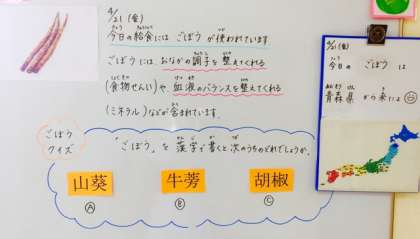 4/21 (金)
今日の給食には ごぼう が使われています
ごぼうには、おなかの調子を整えてくれる
(食物せんい)や 血液のバランスを整えてくれる
(ミネラル)などが含まれています。
ごぼう
クイズ
「ごぼう」を漢字で書くと次のうちのどれでしょうか。
山葵
牛蒡
胡椒
Ⓐ
Ⓑ
Ⓒ
(金)
今日の ごぼう は
青森県 から来たよ